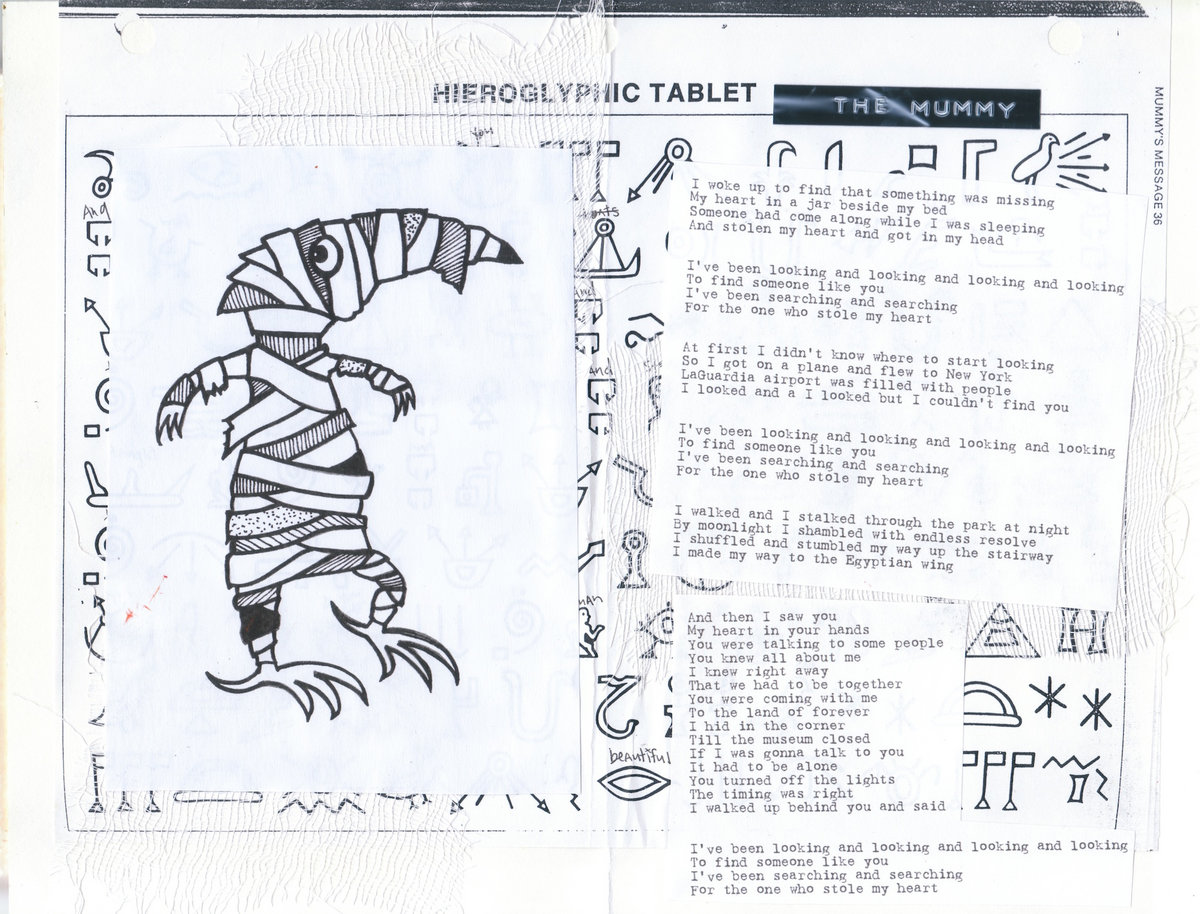 HIEROGLYPHIC TABLET
THE MUMMY
MUMMY'S MESSAGE 36
you
And
And
And
beautiful
I woke up to find that something was missing
My heart in a jar beside my bed
Someone had come along while I was sleeping
And stolen my heart and got in my head
I've been looking and looking and looking and looking
To find someone like you
I've been searching and searching
For the one who stole my heart
At first I didn't know where to start looking
So I got on a plane and flew to New York
LaGuardia airport was filled with people
I looked and a I looked but I couldn't find you
I've been looking and looking and looking and looking
To find someone like you
I've been searching and searching
For the one who stole my heart
I walked and I stalked through the park at night
By moonlight I shambled with endless resolve
I shuffled and stumbled my way up the stairway
I made my way to the Egyptian wing
And then I saw you
My heart in your hands
You were talking to some people
You knew all about me
I knew right away
That we had to be together
You were coming with me
To the land of forever
I hid in the corner
Till the museum closed
If I was gonna talk to you
It had to be alone
You turned off the lights
The timing was right
I walked up behind you and said
I've been looking and looking and looking and looking
To find someone like you
I've been searching and searching
For the one who stole my heart